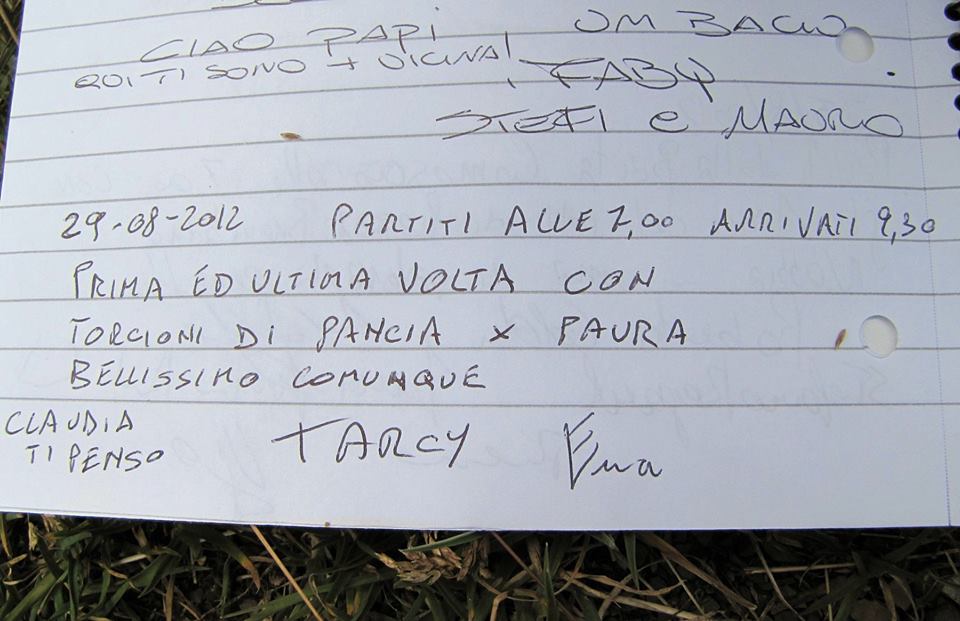 CIAO PAPI UM BACIO
QUI TI SONO + VICINA!
FABY
STEFI e MAURO
29-08-2012 PARTITI ALLE 7,00 ARRIVATI 9,30
PRIMA ED ULTIMA VOLTA CON
TORCIONI DI PANCIA X PAURA
BELLISSIMO COMUNQUE
CLAUDIA
TI PENSO
TARCY